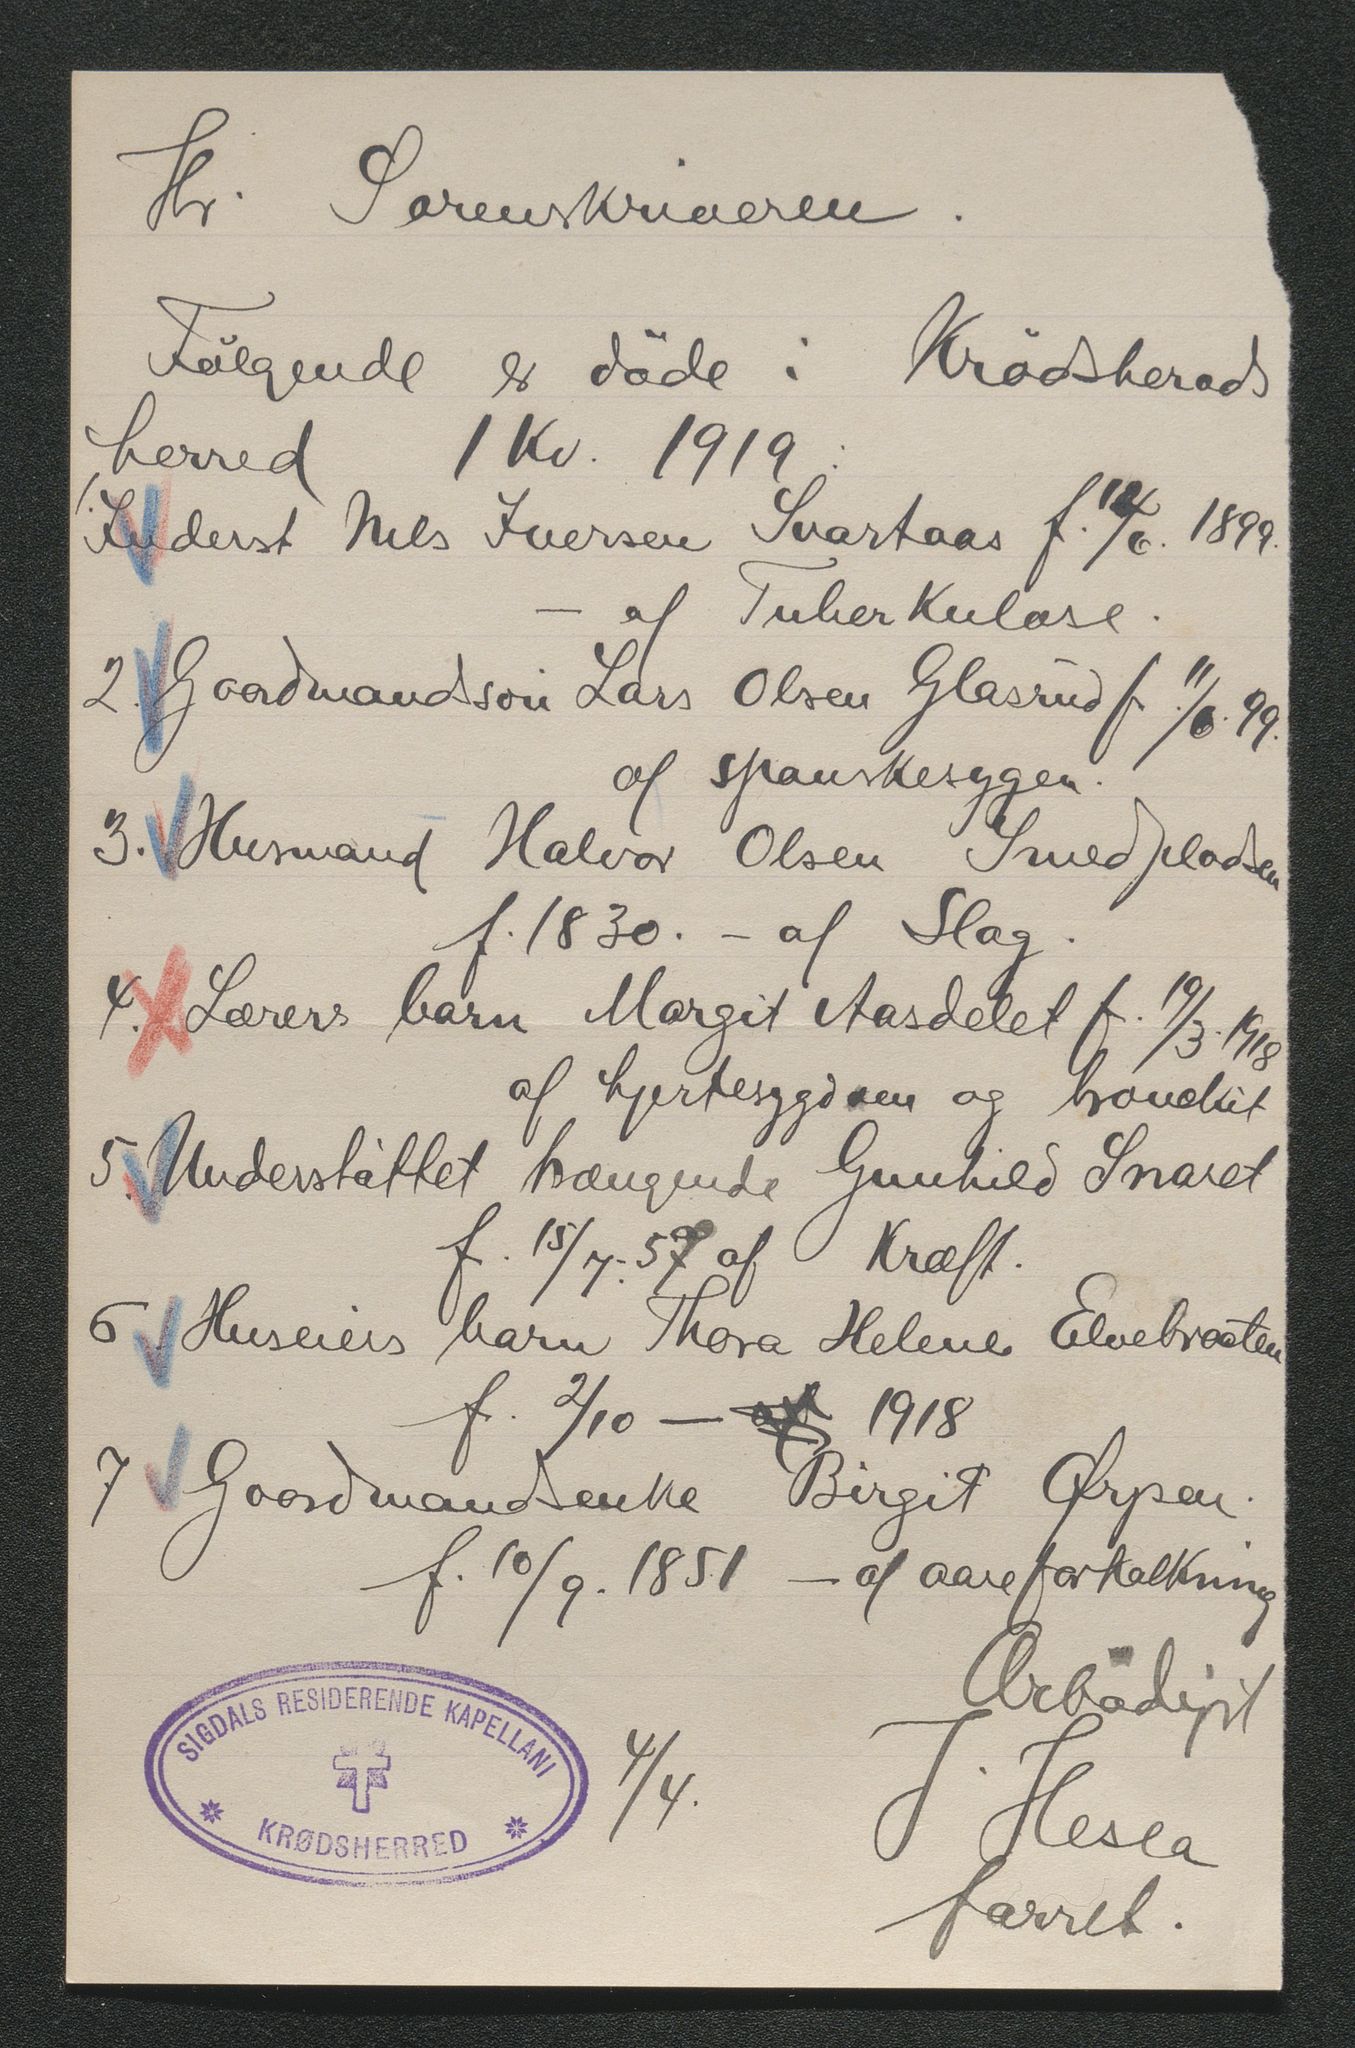 Hr. Sorenskriveren.
Følgende er döde i Krödsherads
herred 1 Kv. 1919:
1. Inderst Nils Iversen Svartaas f. 12/6. 1899.
- af Tuberkulose.
2. Gaardmandssön Lars Olsen Glasrud f. 11/6. 99.
af spanskesygen.
3. Husmand Halvor Olsen Smedpladsen
f. 1830. - af Slag.
4. Lærers barn Margit Aasdelet f. 19/3. 1918
af hjertesygdom og bronchit
5. Understöttet trængende Gunhild Snaret
f. 15/7. 57 af Kræft.
6 Huseiers barn Thora Helene Elvebraaten
f. 2/10 - 1918
7 Gaardmandsenke Birgit Ørpen.
f. 10/9. 1851 - af aareforkalkning
Ærbödigst
4/4. J. Hesla
SIGDALS RESIDERENDE KAPELLANI
KRØDSHERRED